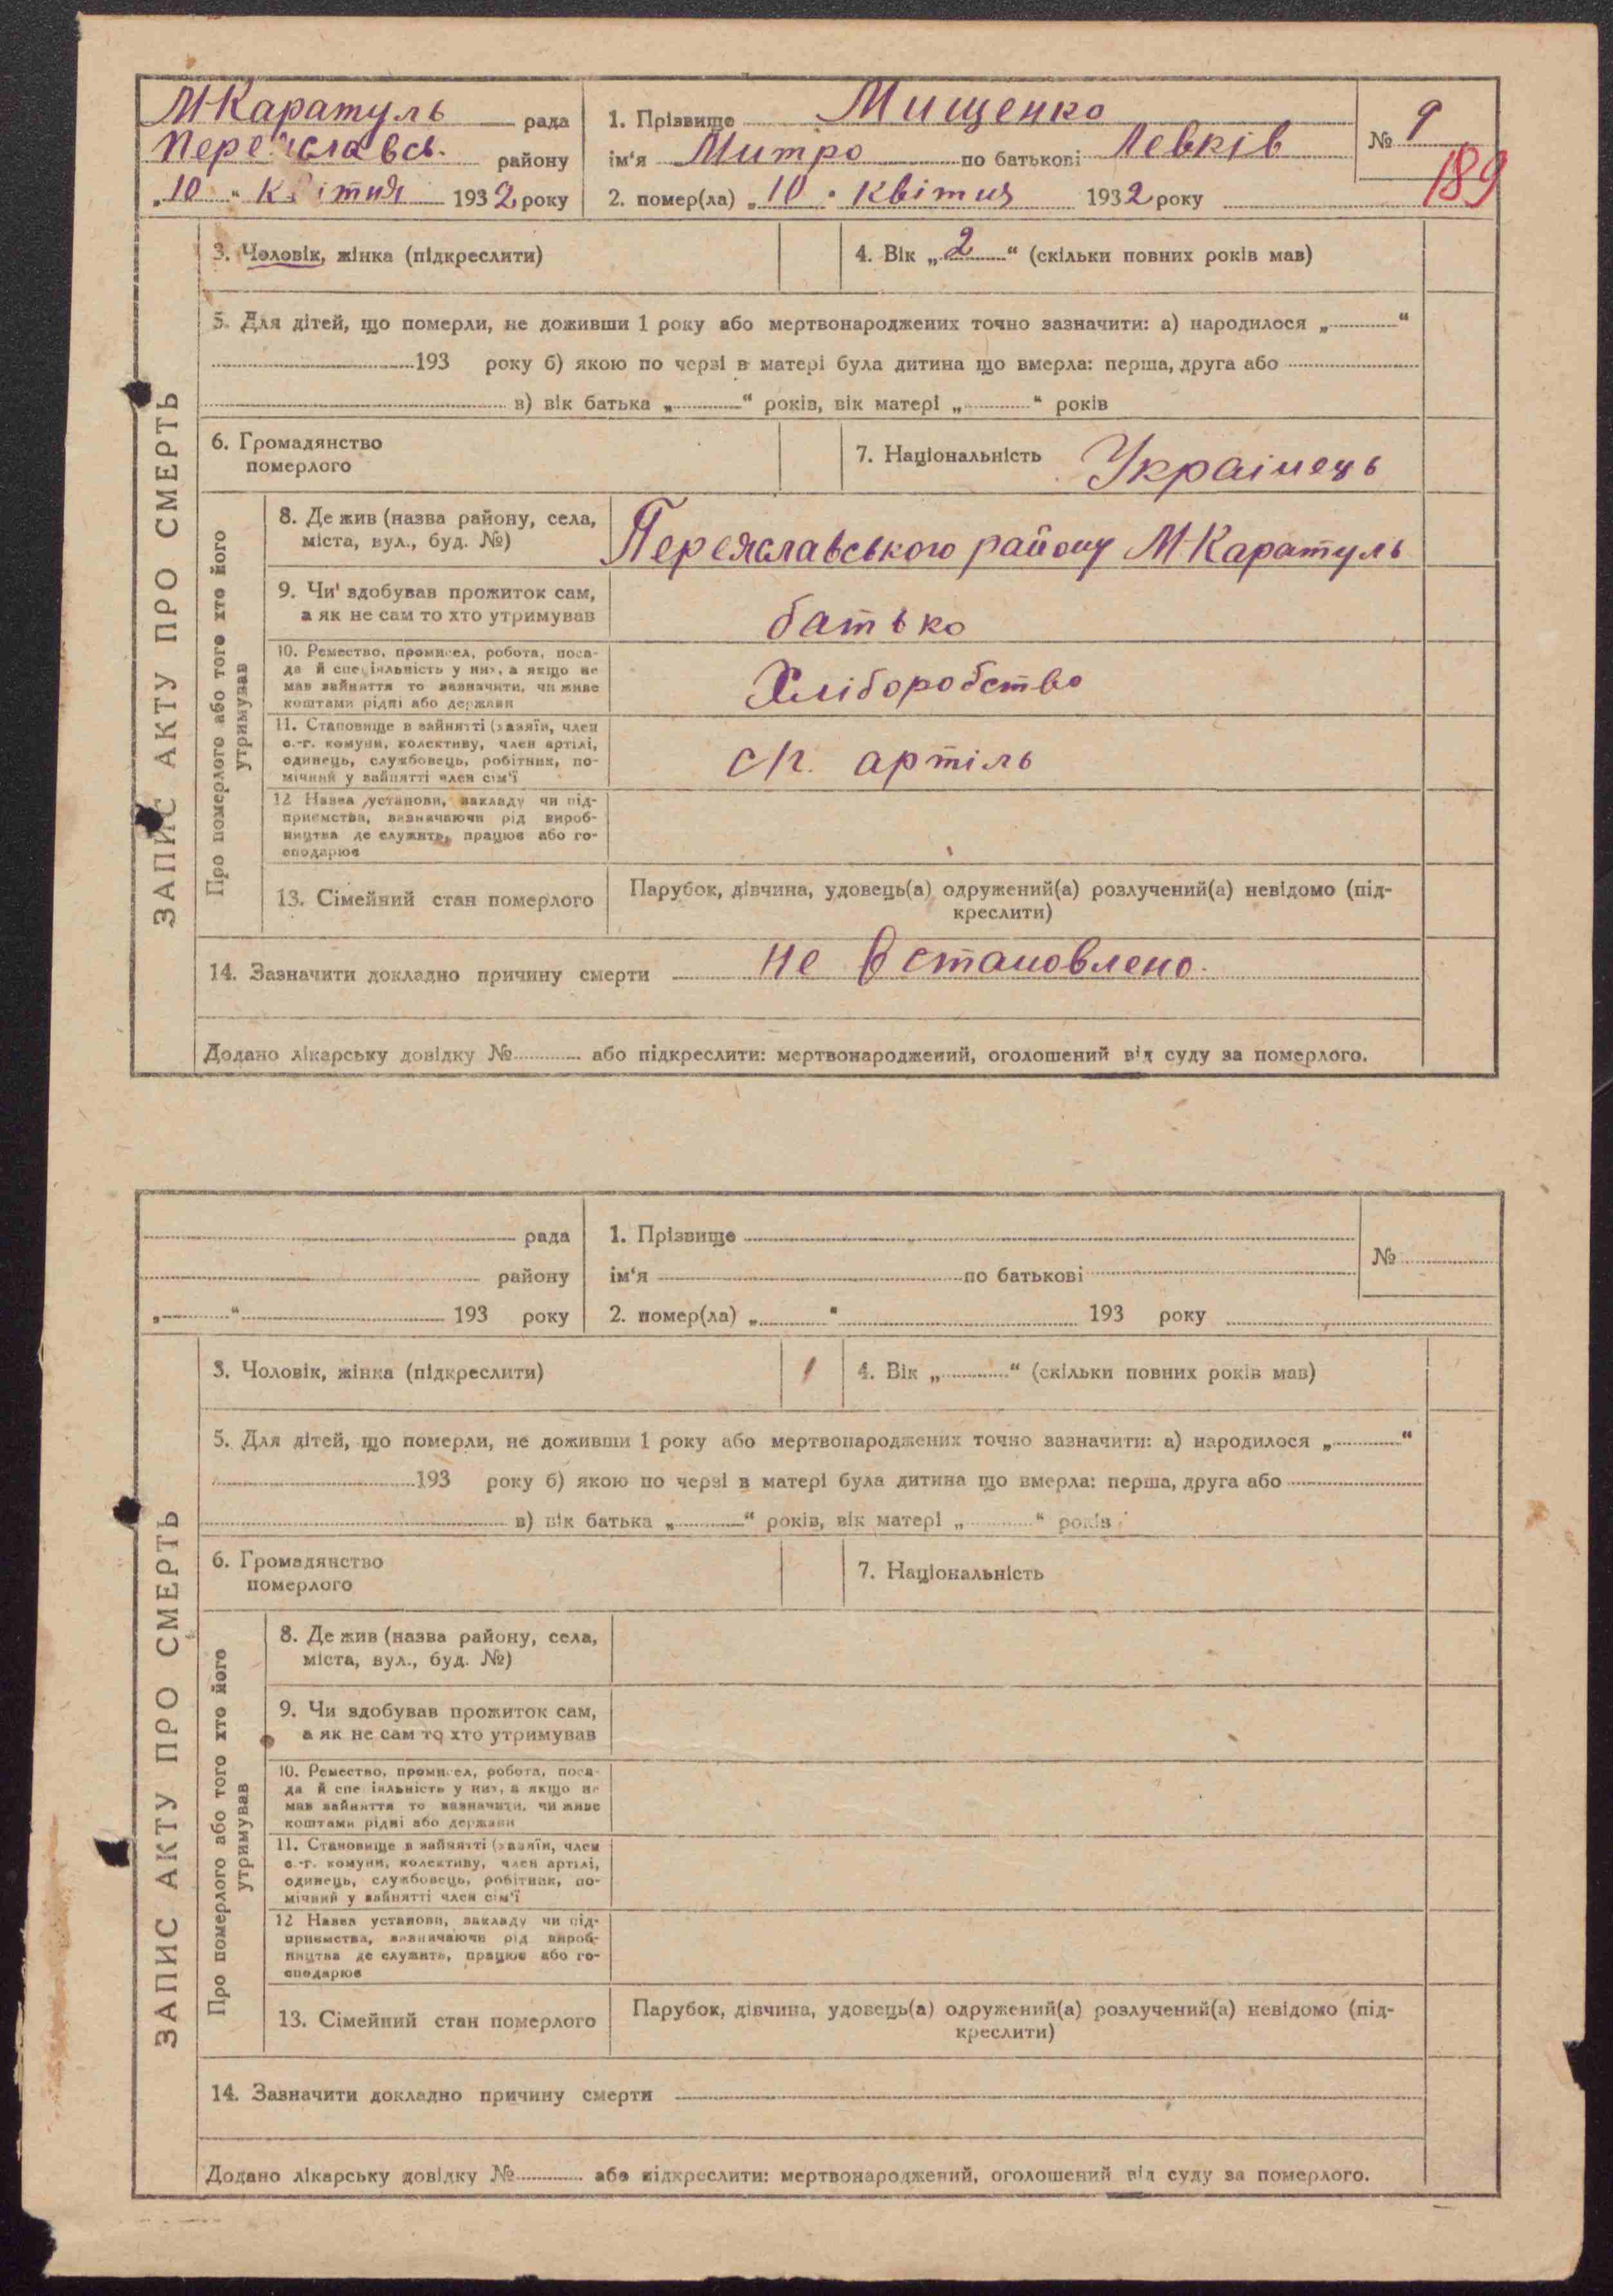 М Каратуль рада
Переяславсь. району
„10“ квітня 1932 року
1. Прізвище Мищенко
ім'я Митро по батькові Левків
2. помер(ла) „10“ квітня 1932 року
№ 9
189
ЗАПИС АКТУ ПРО СМЕРТЬ
3. Чоловік, жінка (підкреслити)
4. Вік „2“ (скільки повних років мав)
5. Для дітей, що померли, не доживши 1 року або мертвонароджених точно зазначити: а) народилося „ “
193 року б) якою по черзі в матері була дитина що вмерла: перша, друга або
в) вік батька „ “ років, вік матері „ “ років
6. Громадянство
померлого
7. Національність Українець
Про померлого або того хто його
утримував
8. Де жив (назва району, села,
міста, вул., буд. №)
Переяславського району М Каратуль
9. Чи вдобував прожиток сам,
а як не сам то хто утримував
батько
10. Ремество, промисел, робота, поса-
да й спеціяльність у них, а якщо не
мав зайняття то зазначити, чи живе
коштами рідні або держави
Хліборобство
11. Становище в зайнятті (хазяїн, член
с.-г. комуни, колективу, член артілі,
одинець, службовець, робітник, по-
мічний у зайнятті член сім'ї
с/г. артіль
12 Назва установи, закладу чи під-
приємства, зазначаючи рід вироб-
ництва де служить, працює або го-
сподарює
13. Сімейний стан померлого
Парубок, дівчина, удовець(а) одружений(а) розлучений(а) невідомо (під-
креслити)
14. Зазначити докладно причину смерти не встановлено.
Додано лікарську довідку № або підкреслити: мертвонароджений, оголошений від суду за померлого.
рада
району
„ “ 193 року
1. Прізвище
ім'я по батькові
2. помер(ла) „ “ 193 року
№
ЗАПИС АКТУ ПРО СМЕРТЬ
3. Чоловік, жінка (підкреслити)
4. Вік „ “ (скільки повних років мав)
5. Для дітей, що померли, не доживши 1 року або мертвонароджених точно зазначити: а) народилося „ “
193 року б) якою по черзі в матері була дитина що вмерла: перша, друга або
в) вік батька „ “ років, вік матері „ “ років
6. Громадянство
померлого
7. Національність
Про померлого або того хто його
утримував
8. Де жив (назва району, села,
міста, вул., буд. №)
9. Чи вдобував прожиток сам,
а як не сам то хто утримував
10. Ремество, промисел, робота, поса-
да й спеціяльність у них, а якщо не
мав зайняття то зазначити, чи живе
коштами рідні або держави
11. Становище в зайнятті (хазяїн, член
с.-г. комуни, колективу, член артілі,
одинець, службовець, робітник, по-
мічний у зайнятті член сім'ї
12 Назва установи, закладу чи під-
приємства, зазначаючи рід вироб-
ництва де служить, працює або го-
сподарює
13. Сімейний стан померлого
Парубок, дівчина, удовець(а) одружений(а) розлучений(а) невідомо (під-
креслити)
14. Зазначити докладно причину смерти
Додано лікарську довідку № або підкреслити: мертвонароджений, оголошений від суду за померлого.